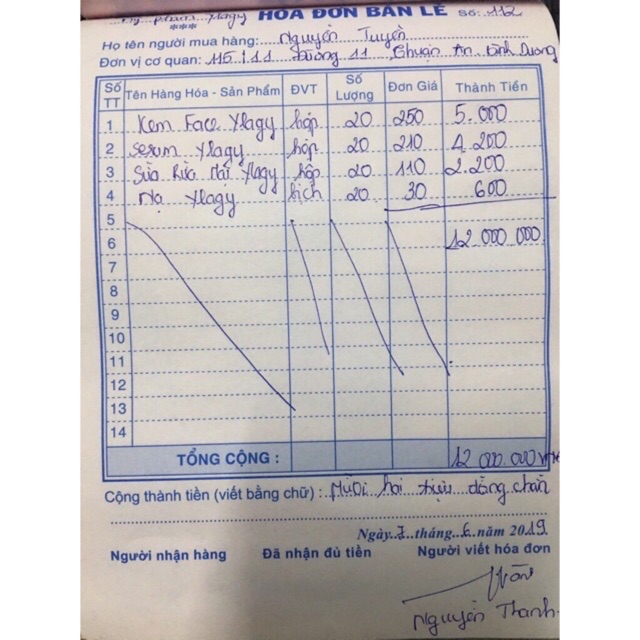 Mỹ phẩm Ylagy HÓA ĐƠN BÁN LẺ Số: 112
***
Họ tên người mua hàng: Nguyễn Tuyền
Đơn vị cơ quan: 115/11 Đường 11, Thuận An Bình Dương
Số TT Tên Hàng Hóa - Sản Phẩm ĐVT Số Lượng Đơn Giá Thành Tiền
1 Kem Face Ylagy hộp 20 250 5.000
2 Serum Ylagy hộp 20 210 4.200
3 Sữa Rửa Mặt Ylagy hộp 20 110 2.200
4 Nạ Ylagy bịch 20 30 600
5
6 12 000 000
7
8
9
10
11
12
13
14
TỔNG CỘNG : 12 000.000 VNĐ
Cộng thành tiền (viết bằng chữ) : Mười hai triệu đồng chẵn
Ngày 7 tháng 6 năm 2019
Người nhận hàng Đã nhận đủ tiền Người viết hóa đơn
Nguyễn Thanh